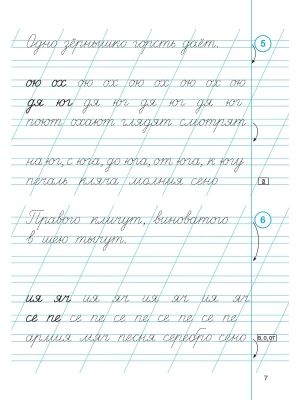 Одно зёрнышко горсть даёт.
5
ою ох ою ох ою ох ою ох ою
дя юг дя юг дя юг дя юг
поют охают глядят смотрят
на юг, с юга, до юга, от юга, к югу
печаль кляча молния сено
Правого кличут, виноватого
6
в шею тычут.
ия яч ия яч ия яч ия яч
се пе се пе се пе се пе се пе
армия мяч песня серебро сено
в, о, от
7